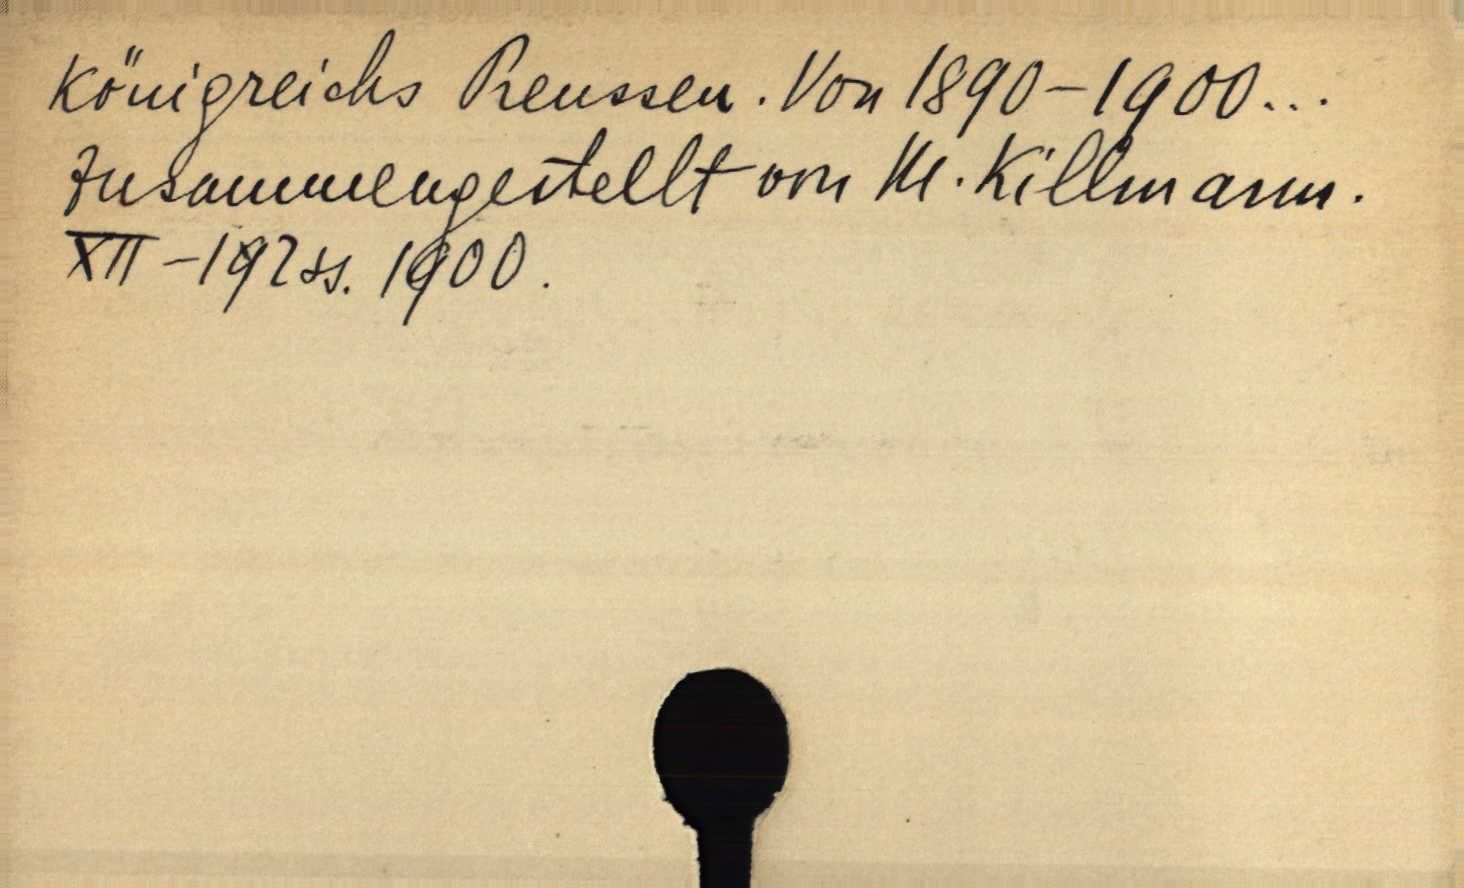 Königreichs Preussen. Von 1890–1900...
Zusammengestellt von M. Killmann.
XII–192 ss. 1900.